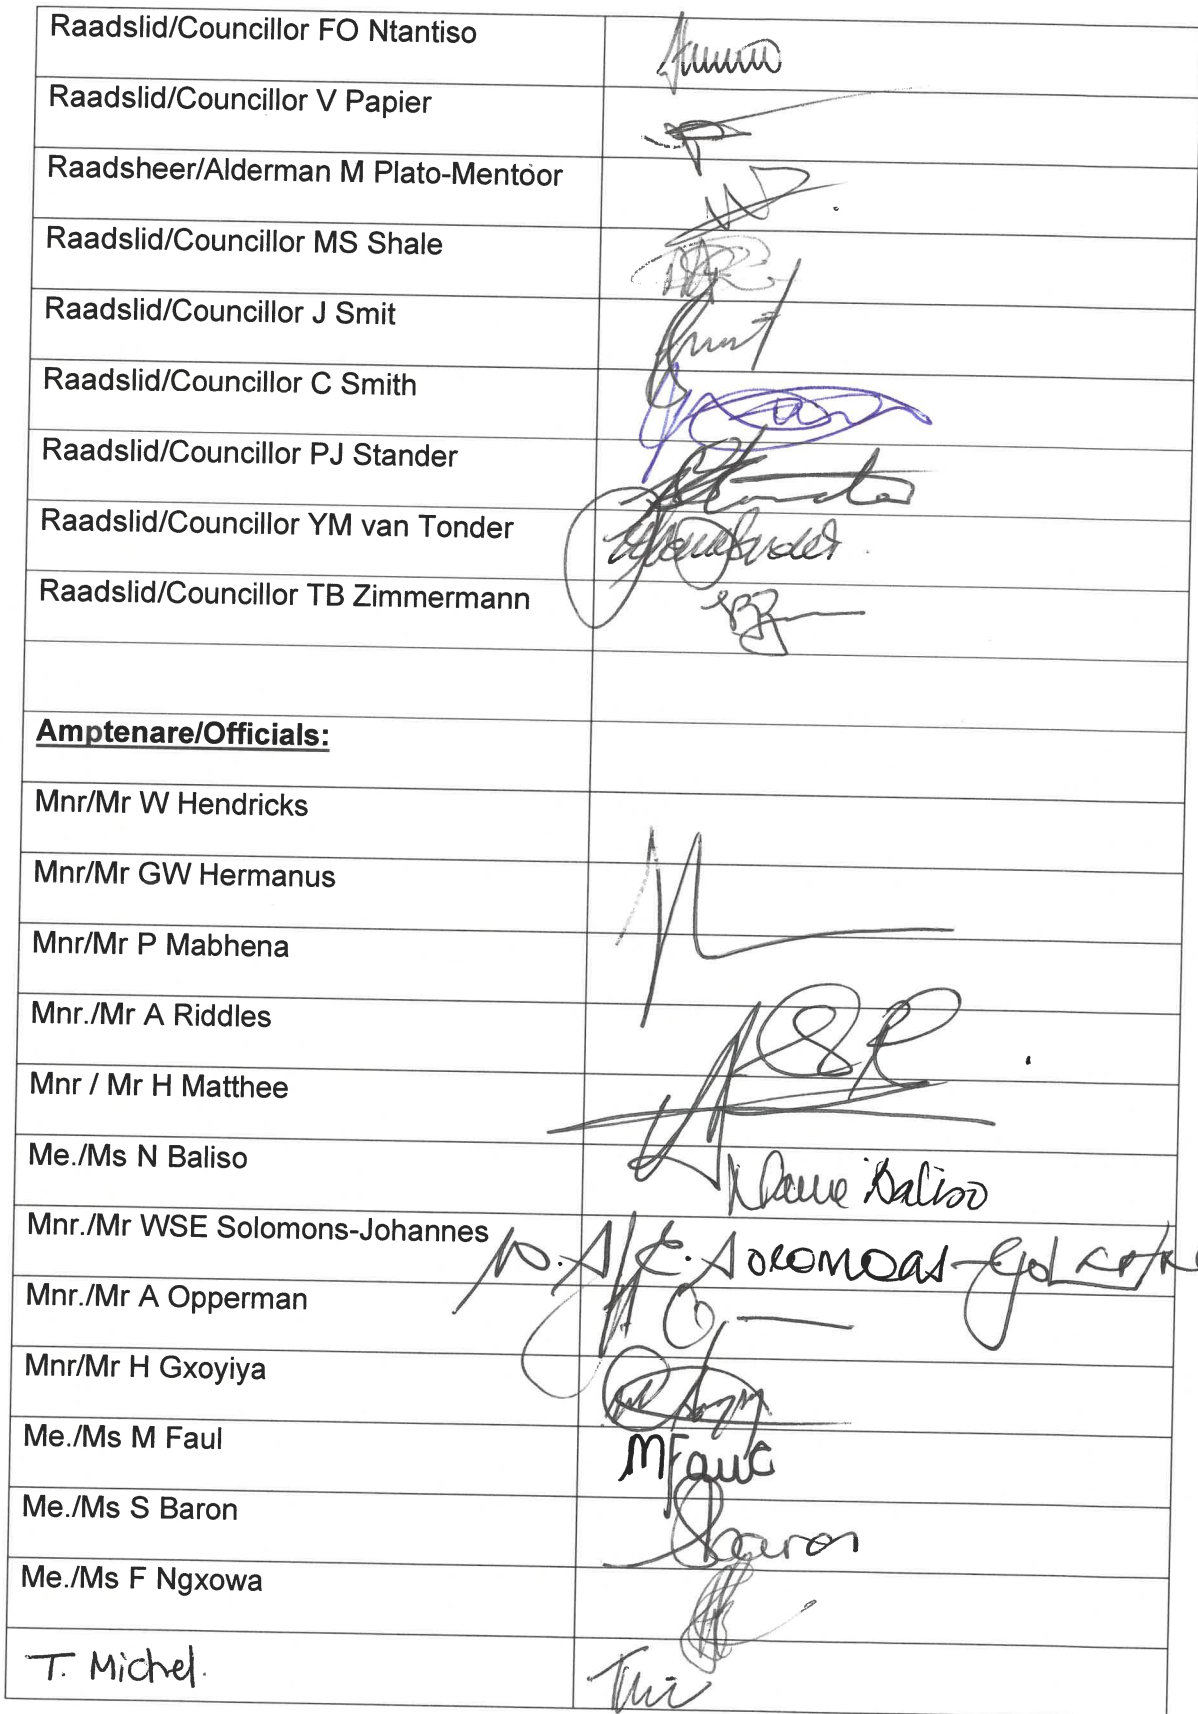 Raadslid/Councillor FO Ntantiso
Raadslid/Councillor V Papier
Raadsheer/Alderman M Plato-Mentoor
Raadslid/Councillor MS Shale
Raadslid/Councillor J Smit
Raadslid/Councillor C Smith
Raadslid/Councillor PJ Stander
Raadslid/Councillor YM van Tonder
Raadslid/Councillor TB Zimmermann
Amptenare/Officials:
Mnr/Mr W Hendricks
Mnr/Mr GW Hermanus
Mnr/Mr P Mabhena
Mnr./Mr A Riddles
Mnr / Mr H Matthee
Me./Ms N Baliso Baliso
Mnr./Mr WSE Solomons-Johannes
Mnr./Mr A Opperman
Mnr/Mr H Gxoyiya
Me./Ms M Faul MFaul
Me./Ms S Baron SBaron
Me./Ms F Ngxowa
T. Michel.